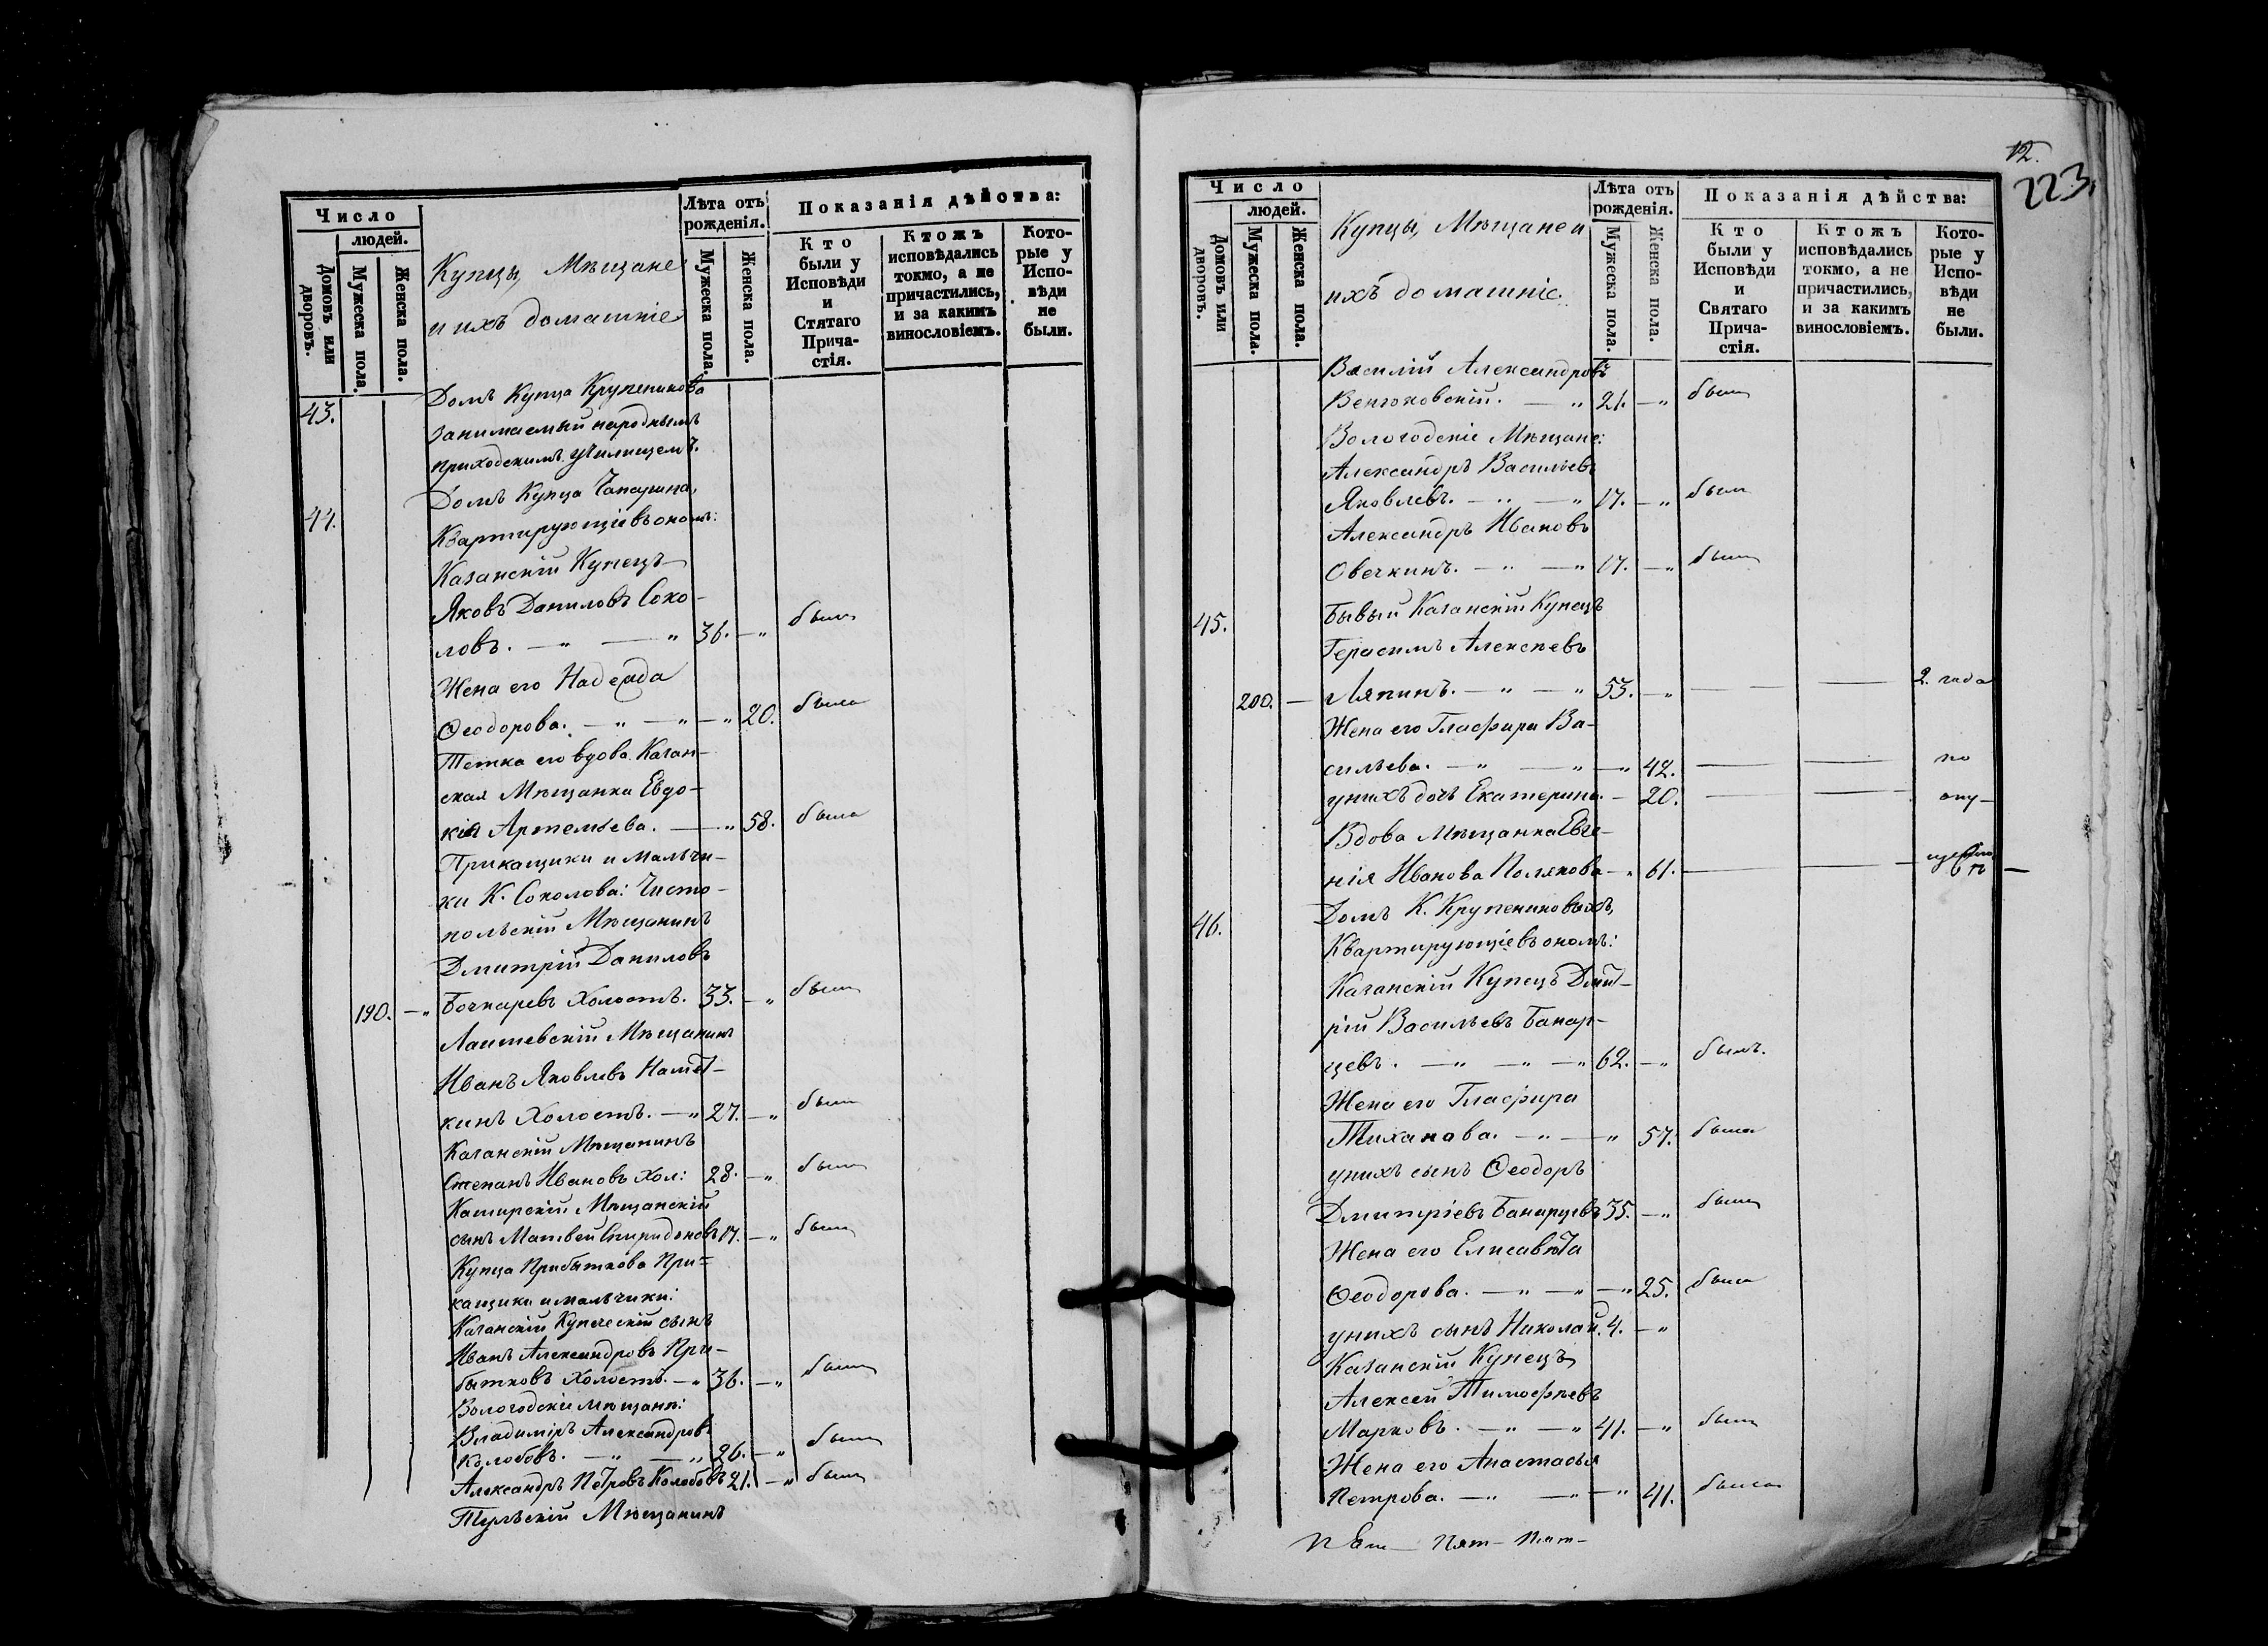 Число
людей.
Домовъ или дворовъ.
Мужеска пола.
Женска пола.
Купцы, Мѣщане
и ихъ домашніе
Лѣта отъ
рожденія.
Мужеска пола.
Женска пола.
Показанія дѣйства:
Кто
были у
Исповѣди
и
Стятаго
Прича-
стія.
Ктожъ
исповѣдались
токмо, а не
причастились,
и за какимъ
винословіемъ.
Кото-
рые у
Испо-
вѣди
не
были.
43. Домъ Купца Крупеникова
занимаемый народнымъ
приходскимъ училищемъ.
44. Домъ Купца Чапарина,
Квартирующіе въ ономъ:
Казанскій Купецъ
Яковъ Даниловъ Соко-
ловъ. — „ — „ 36. — „ былъ
Жена его Надежда
Ѳеодорова. — „ — „ — „ 20. была
Тетка его вдова Казан-
ская Мѣщанка Евдо-
кія Артемьева. — „ 58. была
Прикащики и мальчи-
ки К. Соколова: Чисто-
польскій Мѣщанинъ
Дмитрій Даниловъ
190. — „ Бочкаревъ Холостъ. 33. — „ былъ
Лаишевскій Мѣщанинъ
Иванъ Яковлевъ
кинъ Холостъ. — „ 27. — „ былъ
Казанскій Мѣщанинъ
Степанъ Ивановъ Хол: 28. — „ былъ
Мѣщанскій
сынъ Матвей Спиридоновъ 17. — „ былъ
Купца Прибыткова При-
кащики и мальчики:
Казанскій Купеческій сынъ
Иванъ Александровъ При-
бытковъ Холостъ. — „ 36. — „ былъ
Вологодскіе мѣщане:
Владиміръ Александровъ
Колобовъ. — „ — „ 26. — „ былъ
Александръ Петровъ Колобовъ 21. — „ былъ
Тульскій Мѣщанинъ
12.
223.
Число
людей.
Домовъ или дворовъ.
Мужеска пола.
Женска пола.
Купцы, Мѣщане и
ихъ домашніе.
Лѣта отъ
рожденія.
Мужеска пола.
Женска пола.
Показанія дѣйства:
Кто
были у
Исповѣди
и
Святаго
Прича-
стія.
Ктожъ
исповѣдались
токмо, а не
причастились,
и за какимъ
винословіемъ.
Кото-
рые у
Испо-
вѣди
не
были.
Василій Александровъ
Венюковскій. — „ 21. — „ былъ
Вологодскіе Мѣщане:
Александръ Васильевъ
Яковлевъ. — „ — „ 17. — „ былъ
Александръ Ивановъ
Овечкинъ. — „ — „ 17. — „ былъ
45. Бывый Казанскій Купецъ
Герасимъ Алексѣевъ
200. — Ляпинъ. — „ — „ 53. — „ — — 2. года
Жена его Глафира Ва-
сильева. — „ — „ — „ 42. — — по
у нихъ дочь Екатерина. — 20. — — опу-
Вдова Мѣщанка Евге-
нія Иванова Полякова — „ 61. — —
46. Домъ К. Крупениковыхъ,
Квартирующіе въ ономъ:
Казанскій Купецъ Дмит-
рій Васильевъ Банар-
цевъ. — „ — „ — „ 62. — „ былъ.
Жена его Глафира
Тиханова. — „ — „ 57. была
у нихъ сынъ Ѳеодоръ
Дмитріевъ Банарцевъ 35. — „ былъ
Жена его Елисавета
Ѳеодорова. — „ — „ — „ 25. была
у нихъ сынъ Николай. 4. — „
Казанскій Купецъ
Алексей Тимофѣевъ
Марковъ. — „ — „ 41. — „ былъ
Жена его Анастасья
Петрова. — „ — „ — „ 41. была